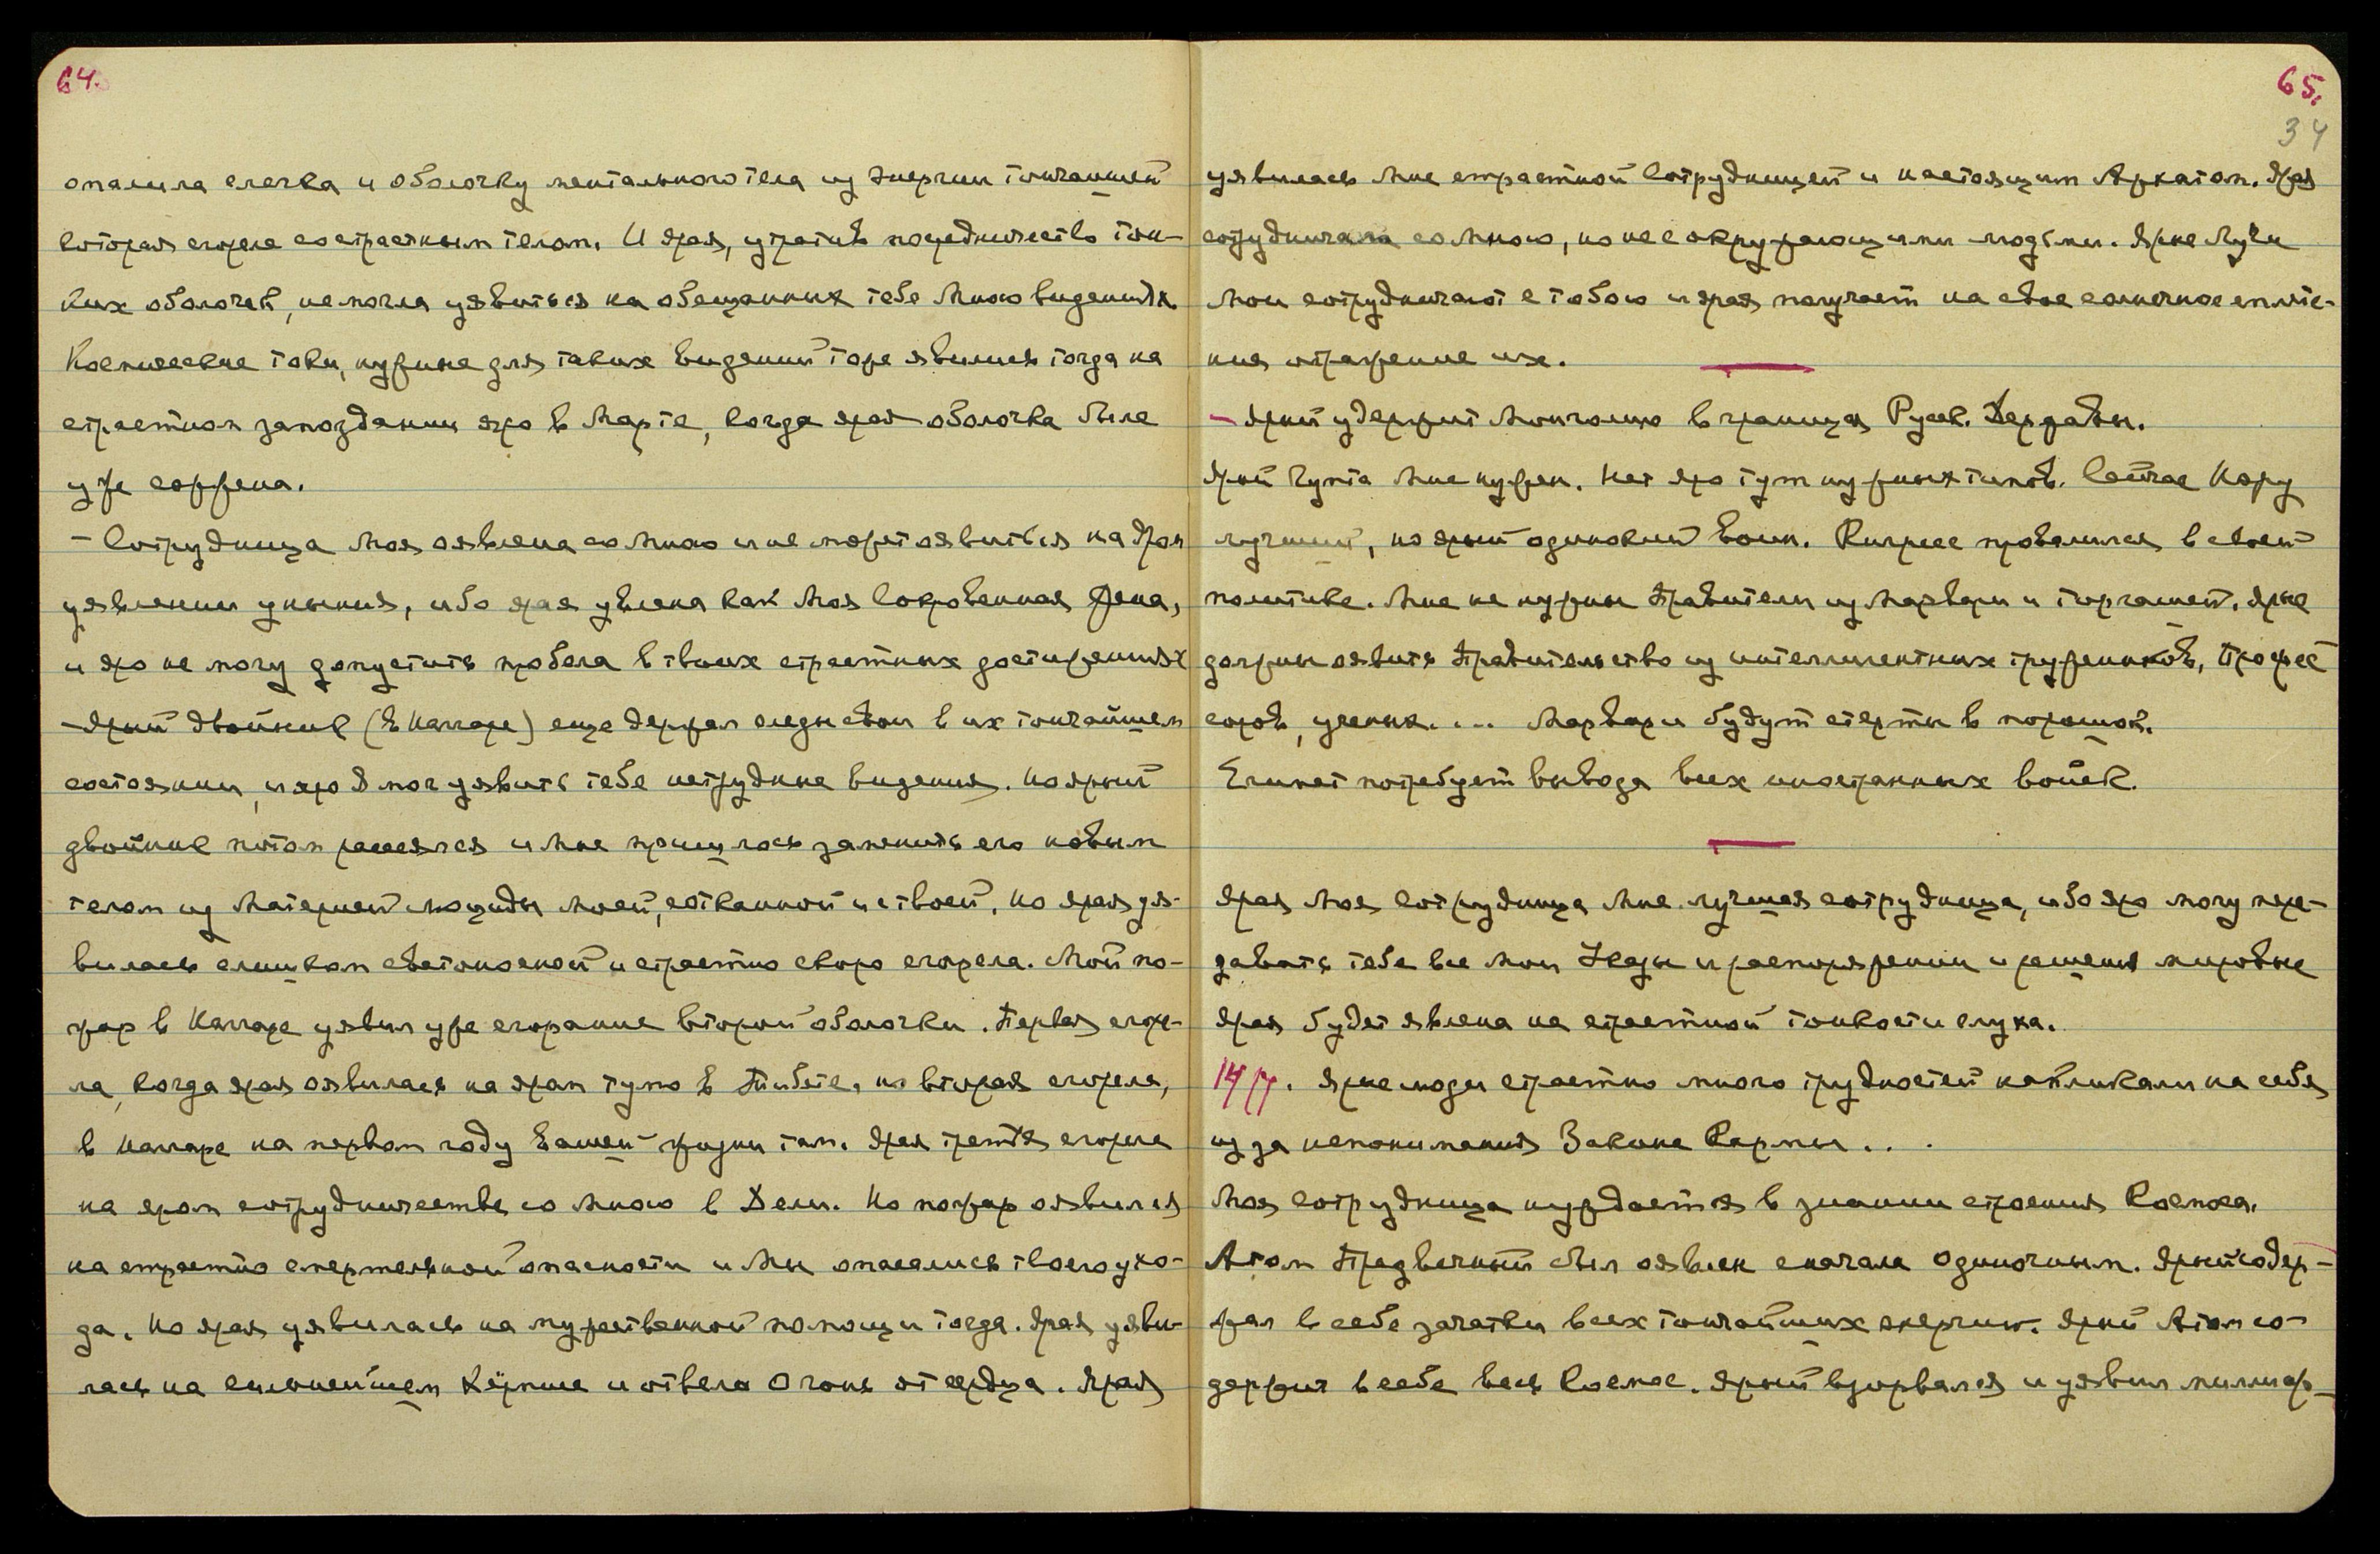 64.
опалила слегка и оболочку ментального тела из энергии тончайшей
которая сгорела со страстным телом. И ярая, утратив посредничество тон-
ких оболочек, не могла уявиться на обещанных тебе Мною видениях.
Космические токи, нужные для таких видений тоже явились тогда на
страстном запоздании яро в Марте, когда ярая оболочка была
уже сожжена.
- Сотрудница Моя оявлена со Мною и не может оявиться на яром
уявлении уныния, ибо ярая уявлена как Моя Сокровенная Жена,
и яро не могу допустить пробела в твоих страстных достижениях
- Ярый двойник (в Наггаре) еще держал следы свои в их тончайшем
состоянии, и яро Я мог уявить тебе нетрудные видения. Но ярый
двойник потом рассеялся и Мне пришлось заменить его новым
телом из Материи Люциды Моей, сотканной и с твоей, но ярая уя-
вилась слишком светоносной и страстно скоро сгорела. Мой по-
жар в Наггаре уявил уже сгорание второй оболочки. Первая сгоре-
ла, когда ярая оявилась на яром тумо в Тибете, но вторая сгорела,
в Наггаре на первом году Вашей жизни там. Ярая третья сгорела
на яром сотрудничестве со Мною в Дели. Но пожар оявился
на страстно смертельной опасности и Мы опасались твоего ухо-
да. Но ярая уявилась на мужественной помощи тогда. Ярая уяви-
лась на сильнейшем Кёрпше и отвела Огонь от сердца. Ярая
65.
34
уявилась Мне страстной Сотрудницей и настоящим Архатом. Ярая
сотрудничала со Мною, но не с окружающими людьми. Ярые Лучи
Мои сотрудничают с тобою и ярая получает на свое солнечное сплете-
ние отражение их.
- Ярый удержит Монголию в границах Русск. Державы.
Ярый Гупта Мне нужен. Нет яро тут нужных типов. Сейчас Неру
лучший, но ярый одинокий Воин. Кигресс провалился в своей
политике. Мне не нужны Правители из Марвари и торгашей. Ярые
должны оявить Правительство из интеллигентных тружеников, Профес
соров, ученых.... Марвари будут стерты в порошок.
Египет потребует вывода всех иностранных войск.
Ярая Моя Сотрудница Мне лучшая сотрудница, ибо яро могу пере-
давать тебе все Мои Указы и распоряжения и решения мировые
Ярая будет явлена на страстной тонкости слуха.
14/IV. Ярые люди страстно много трудностей накликали на себя
из за непонимания Закона Кармы...
Моя Сотрудница нуждается в знании строения Космоса.
Атом Предвечный был оявлен сначала одиночным. Ярый содер-
жал в себе зачатки всех тончайших энергий. Ярый Атом со-
держит в себе весь Космос. Ярый взорвался и уявил миллиар-